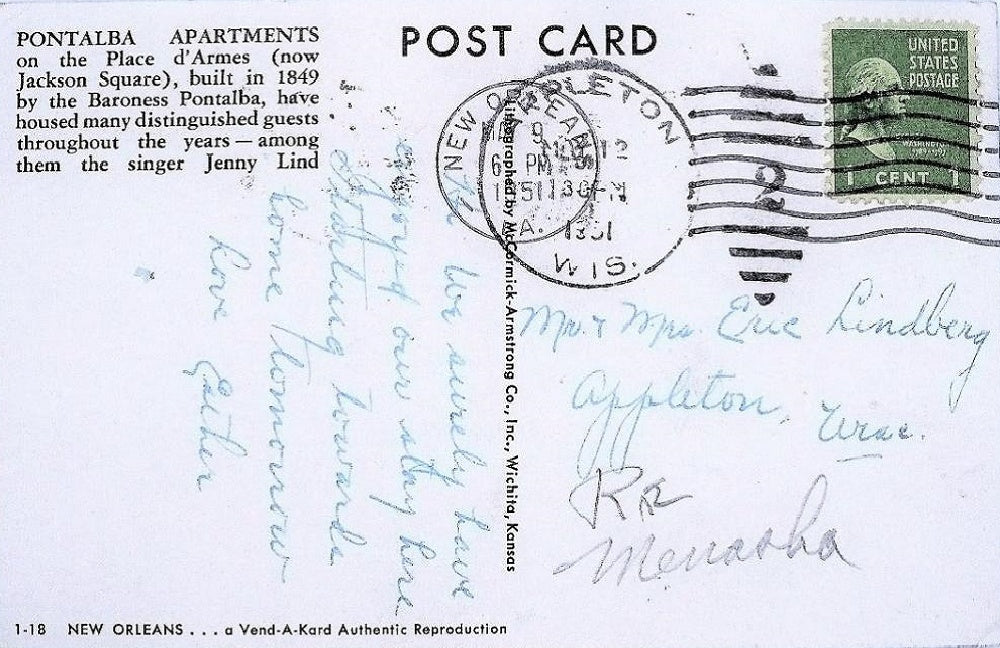 PONTALBA APARTMENTS
on the Place d'Armes (now
Jackson Square), built in 1849
by the Baroness Pontalba, have
housed many distinguished guests
throughout the years — among
them the singer Jenny Lind
POST CARD
NEW ORLEANS
9
PM
1951
LA.
APPLETON
NOV 12
1951
WIS.
2
UNITED
STATES
POSTAGE
WASHINGTON
1 CENT 1
We surely have
enjoyed our stay here
Starting towards
home tomorrow
Love Esther
Lithographed by McCormick-Armstrong Co., Inc., Wichita, Kansas
Mr. & Mrs. Eric Lindberg
Appleton,
Menasha
1-18 NEW ORLEANS . . . a Vend-A-Kard Authentic Reproduction